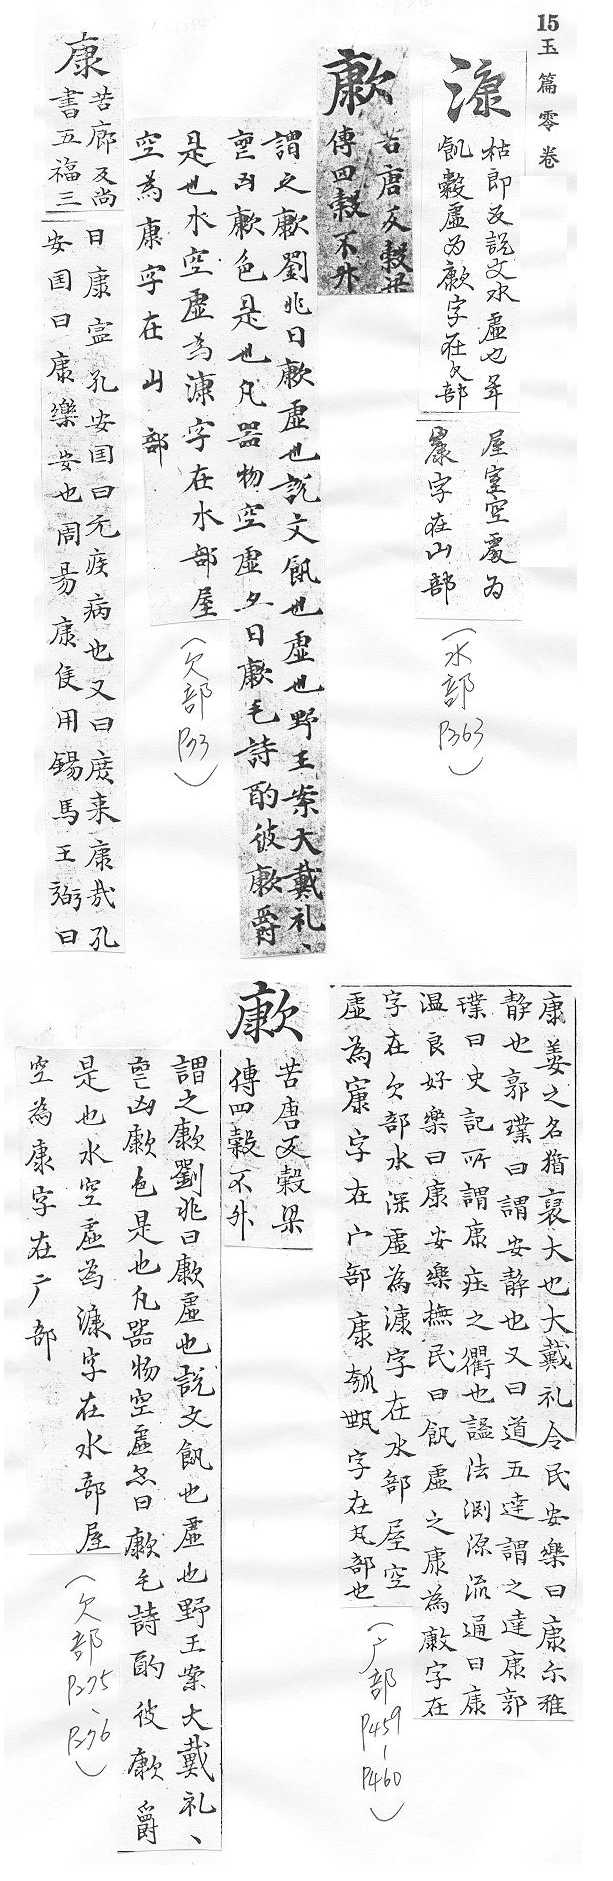 15玉篇零卷
漮
枯郎反說文水虛也年
飢穀虛為歉字在欠部
屋室空虛為
㝩字在宀部
（水部
P363）
歉
苦唐反穀梁
傳四穀不升
謂之歉劉兆曰歉虛也說文飢也虛也野王案大戴礼、
㽞凶歉色是也凡器物空虛亦曰歉毛詩酌彼歉爵
是也水空虛為漮字在水部屋
空為康字在山部
（欠部
P73）
康
苦廊反尚
書五福三
曰康寍孔安囯曰无疾病也又曰庶来康哉孔
安囯曰康樂安也周昜康侯用錫馬王弼曰
康姜之名猶襃大也大戴礼令民安樂曰康尓雅
静也郭璞曰謂安静也又曰道五達謂之達康郭
璞曰史記所謂康莊之衢也謚法渊源流通曰康
温良好樂曰康安樂撫民曰飢虛之康為歉字在
字在欠部水深虛為漮字在水部屋空
虛為㝩字在宀部康瓠甈字在瓦部也
（广部
P459-
P460）
歉
苦唐反穀梁
傳四穀不升
謂之歉劉兆曰歉虛也說文飢也虛也野王案大戴礼、
凶歉色是也凡器物空虛亦曰歉毛詩酌彼歉爵
是也水空虛為漮字在水部屋
空為康字在广部
（欠部
P275、
P276）